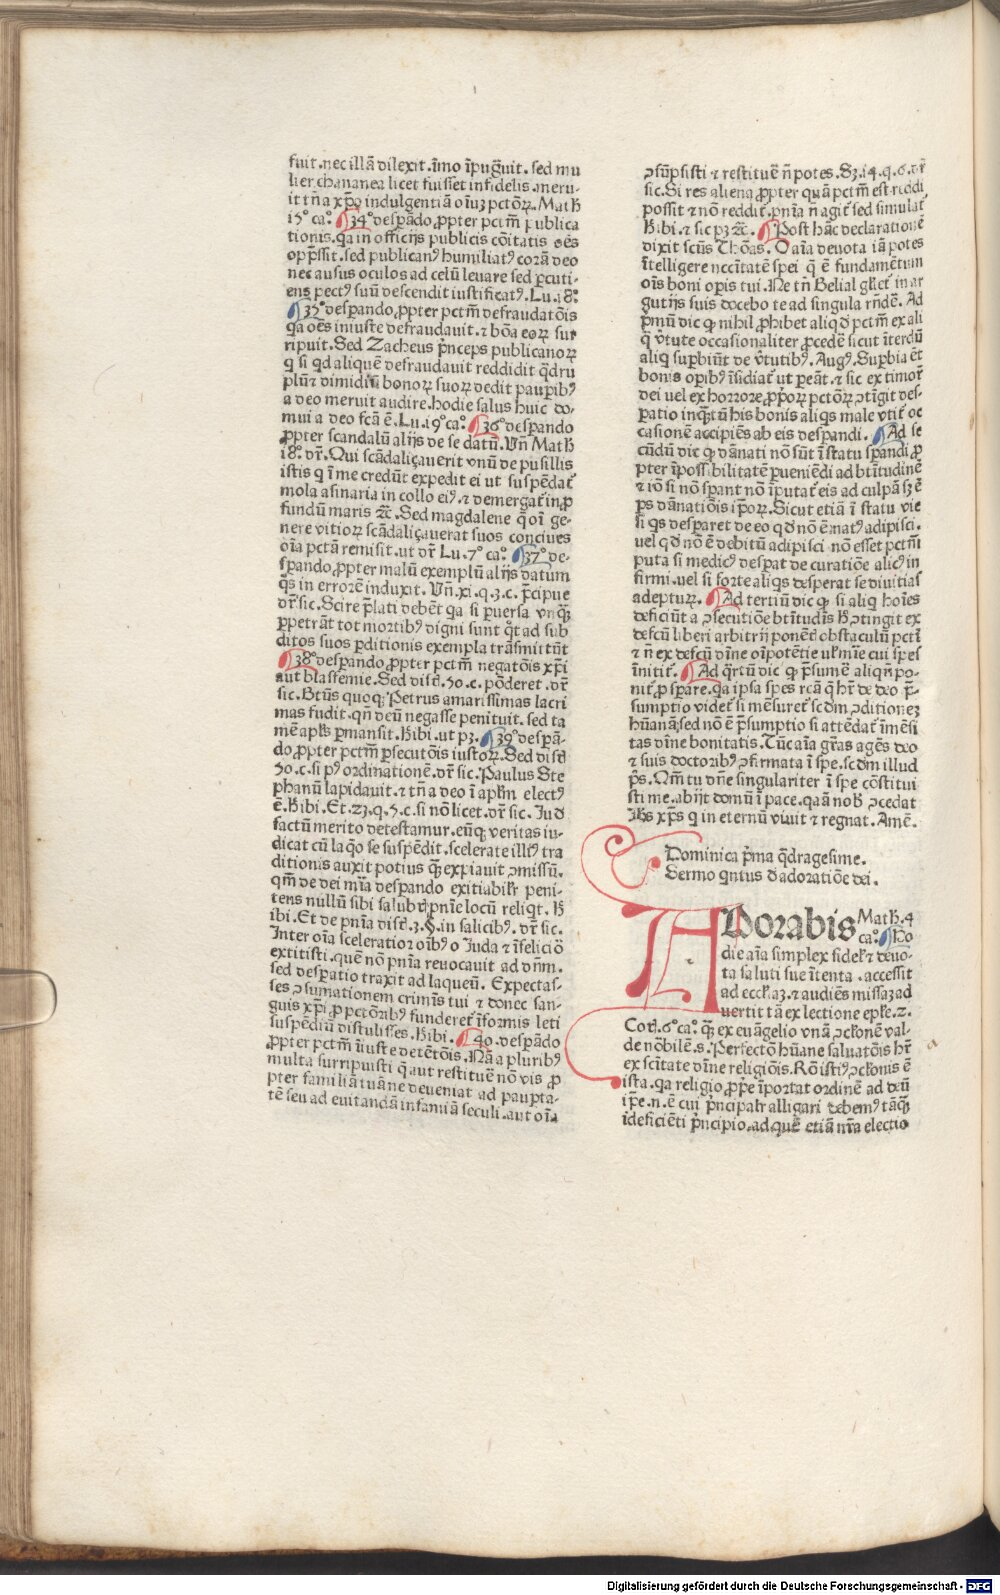 fuit. nec illā dilexit. īmo īpug̃uit. sed mu
lier chananea licet fuisset infidelis meru-
it tñ a xp̄o indulgentiā oīuʒ pctōꝝ. Matħ
15° ca°. ¶ 34° despādo ꝓpter pctm̄ publica
tionis. qa in officijs publicis cōitatis oēs
opp̄ssit. sed publicanꝰ humiliatꝰ corā deo
nec ausus oculos ad celū leuare sed ꝑcuti-
ens pectꝰ suū descendit iustificatꝰ. Lu. 18°.
¶ 35° desperando ꝓpter pctm̄ defraudatōis
qa oēs iniuste defraudauit. ⁊ bōa eoꝝ sur
ripuit. Sed Zacheus p̄nceps publicanoꝝ
q si qd aliquē defraudauit reddidit q̄dru
plū ⁊ dimidiū bonoꝝ suoꝝ dedit pauꝑibꝰ
a deo meruit audire. hodie salus huic do-
mui a deo fcā ē. Lu. 19° ca°. ¶ 36° desꝑando
ꝓpter scandalū alijs de se datū. Vñ Matħ
18°. dr̄. Qui scādaliçauerit vnū de pusillis
istis q ī me credūt expedit ei ut suspēdat̄
mola asinaria in collo eiꝰ. ⁊ demergat̄ in ꝓ
fundū maris ⁊c̄. Sed magdalene q̄ oī ge-
nere vitioꝝ scādaliçauerat suos conciues
oīa pctā remisit. ut dr̄ Lu. 7° ca°. ¶ 37° de-
sꝑando ꝓpter malū exemplū alijs datum
qs in errorē induxit. Vñ. xi. q. 3. c. p̄cipue
dr̄ sic. Scire p̄lati debēt qa si ꝑuersa vnqȝ
ꝑpetrāt tot mortibꝰ digni sunt qt ad sub
ditos suos ꝑditionis exempla trāsmittūt
¶ 38° desꝑando ꝓpter pctm̄ negatōis xp̄i
aut blasfemie. Sed dist. 50. c. pōderet. dr̄
sic. Btūs quoqȝ Petrus amarissimas lacri
mas fudit. qñ deū negasse penituit. sed ta
mē apl's ꝑmansit. Hibi. ut pȝ. ¶ 39° desꝑā-
do ꝓpter pctm̄ ꝑsecutōis iustoꝝ. Sed dist
50. c. si pꝰ ordinationē. dr̄ sic. Paulus Ste
phanū lapidauit. ⁊ tñ a deo ī apl'm electꝰ
ē. Hibi. Et. 23. q. 5. c. si nō licet. dr̄ sic. Jud
factū merito detestamur. eūqȝ veritas iu-
dicat cū laqo se suspēdit. scelerate illiꝰ tra
ditionis auxit potius qȝ expiauit ↄmissū.
qm̄ de dei mīa desꝑando exitiabilr peni-
tens nullū sibi salubrꝰ pn̄ie locū reliqt. H
ibi. Et de pn̄ia dist. 3. §. in salicibꝰ. dr̄ sic.
Inter oīa sceleratior oībꝰ o Juda ⁊ īfelicio
extitisti. quē nō pn̄ia reuocauit ad dn̄m.
sed desꝑatio traxit ad laqueū. Expectas-
ses ↄsumationem crimīs tui ⁊ donec san-
guis xp̄i ꝓ pctōribꝰ funderet̄ īformis leti
suspēdiū distulisses. Hibi. ¶ 40. desꝑādo
ꝓpter pctm̄ iīuste detētōis. Nā a pluribꝰ
multa surripuisti q̄ aut restituē nō vis ꝓ
pter familiā tuā ne deueniat ad pauꝑta-
tē seu ad euitandā infamiā seculi. aut oīa
ↄsūpsisti ⁊ restituē ñ potes. Sȝ. 14. q. 6. dr̄
sic. Si res aliena ꝓpter quā pctm̄ est. reddi
possit ⁊ nō reddit̄. pn̄ia ñ agit̄ sed simulat̄
Hibi. ⁊ sic pȝ ⁊c̄. ¶ Post hāc declarationē
dixit scūs Thōas. O aīa deuota iā potes
ītelligere nccītatē spei q̄ ē fundamētum
oīs boni oꝑis tui. Ne tñ Belial gl'iet̄ in ar
gutijs suis docebo te ad singula rñdē. Ad
p̄mū dic ꝙ nihil ꝓhibet aliqd pctm̄ ex ali
q v̄tute occasionaliter ꝓcedē sicut īterdū
aliq suꝑbiūt de v̄tutibꝰ. Augꝰ. Suꝑbia ēt
bonis oꝑibꝰ īsidiat̄ ut ꝑeāt. ⁊ sic ex timor̄
dei uel ex horrore ꝓpōꝝ pctōꝝ ↄtīgit des-
ꝑatio inqȝtū his bonis aliqs male vtit̄ oc
casionē accipiēs ab eis desꝑandi. ¶ Ad se
cūdū dic ꝙ dānati nō sūt ī statu sꝑandi ꝓ
pter īpossibilitatē ꝑueniēdi ad btītudinē
⁊ iō si nō sꝑant nō īputat̄ eis ad culpā sȝ ē
ps dānatiōis ipoꝝ. Sicut etiā ī statu vie
si qs desꝑaret de eo qd nō ē natꝰ adipisci.
vel qd nō ē debitū adipisci nō esset pctm̄
puta si medicꝰ desꝑat de curatiōe alicꝰ in
firmi. uel si forte aliqs desperat se diuitias
adepturꝝ. ¶ Ad tertiū dic ꝙ si aliq hoīes
deficiūt a ↄsecutiōe btītudīs ħ ↄtingit ex
defcū liberi arbitrij ponēt̄ obstaculū pcti
⁊ ñ ex defcū dīne oīpotētie ul' mīe cui spes
īnitit̄. ¶ Ad q̄rtū dic ꝙ p̄sumē aliqñ po-
nit̄ ꝓ sꝑare. qa ipsa spes rcā q̄ hr̄ de deo p̄-
sumptio videt̄ si mēsuret̄ scdm ↄditioneȝ
hūanā: sed nō ē p̄sumptio si attēdat̄ īmēsi
tas dīne bonitatis. Tūc aīa gr̄as agēs deo
⁊ suis doctoribꝰ ↄfirmata ī spe. scdm illud
ps. Qm̄ tu dn̄e singulariter ī spe cōstitui
sti me. abijt domū ī pace. quā nob̄ ↄcedat
Jhs xp̄s q in eternū viuit ⁊ regnat. Amē.
Dominica p̄ma q̄dragesime.
Sermo qntus d̄ adoratiōe dei.
ADorabis Matħ. 4
ca°. ¶ Ho
die aīa simplex fidel' ⁊ deuo-
ta saluti sue ītenta. accessit
ad eccl'iaȝ. ⁊ audiēs missaȝ ad
uertit tā ex lectione epl'e. 2.
Cor̄. 6° ca°. qȝ ex euāgelio vnā ↄcl'onē val-
de nōbilē. s. Perfectō hūane saluatōis hr̄
ex scītate dīne religiōis. Rō istiꝰ ↄcl'onis ē
ista. qa religio ꝓpe īportat ordinē ad deū
ip̄e. n. ē cui p̄ncipalr alligari debemꝰ tāqȝ
īdeficiēti p̄ncipio. ad quē etiā nr̄a electio
Digitalisierung gefördert durch die Deutsche Forschungsgemeinschaft - DFG